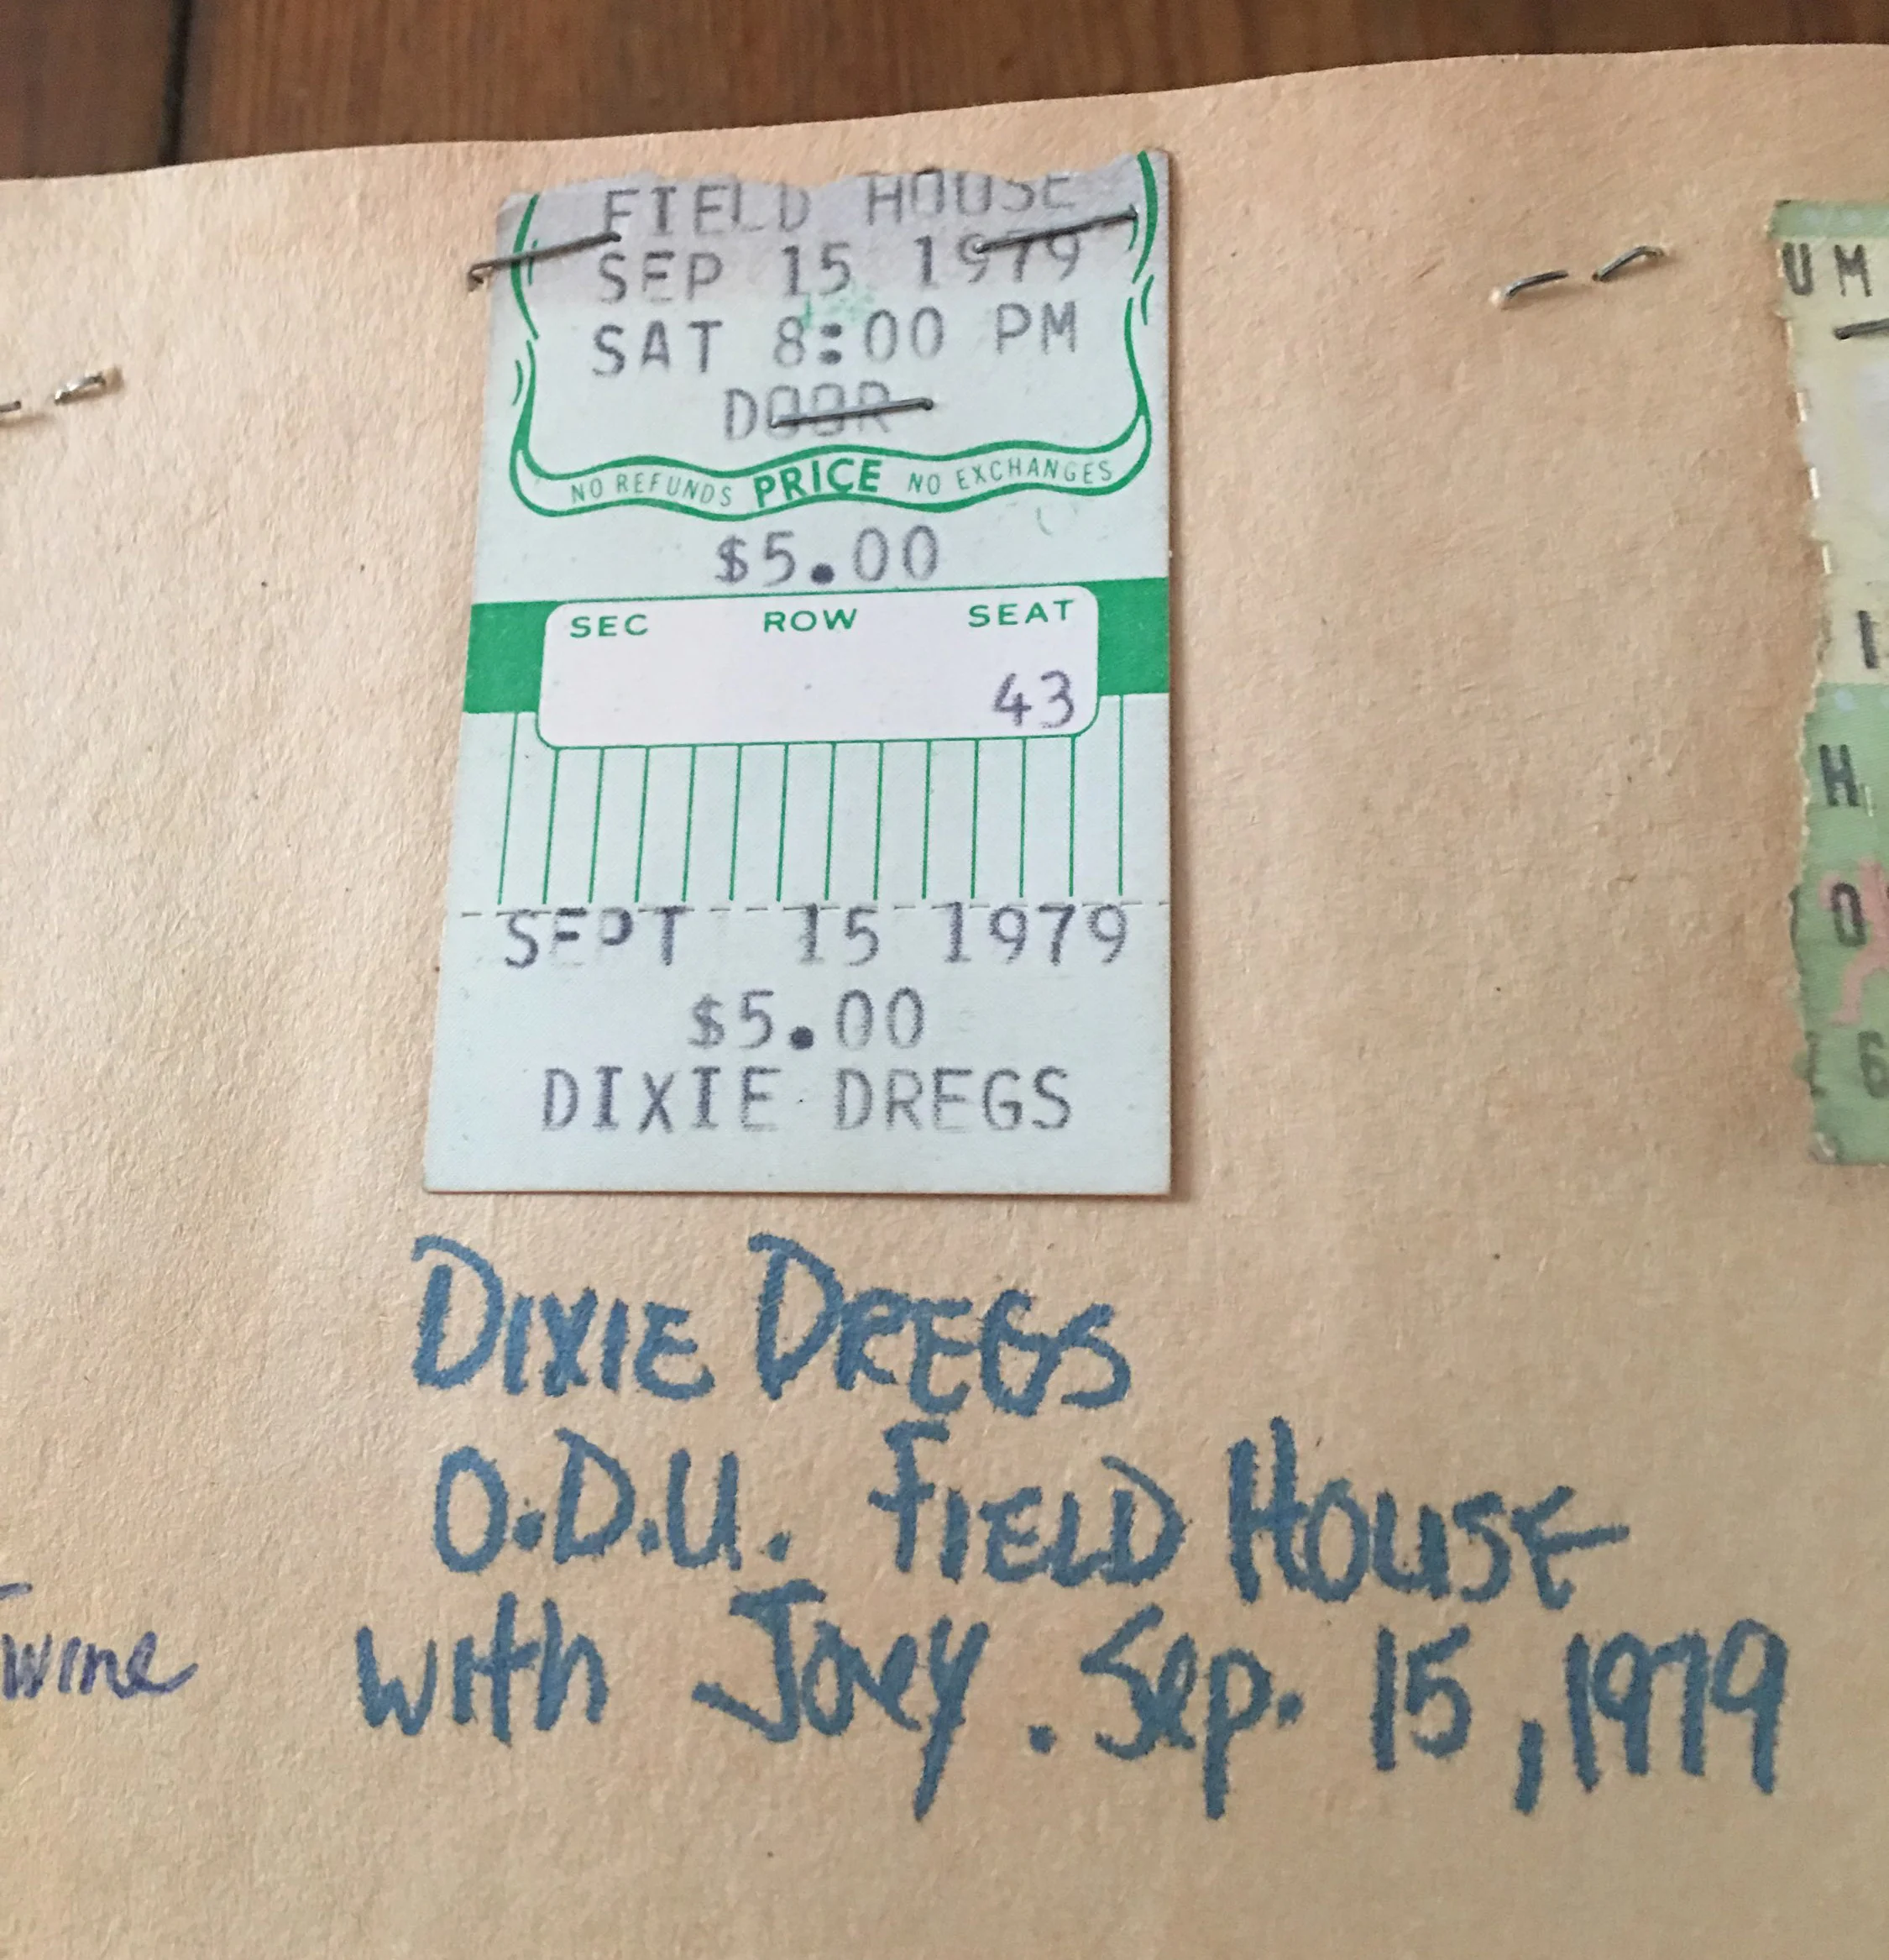 FIELD HOUSE
SEP 15 1979
SAT 8:00 PM
DOOR
NO REFUNDS PRICE NO EXCHANGES
$5.00
SEC ROW SEAT
43
SEPT 15 1979
$5.00
DIXIE DREGS
DIXIE DREGS
O.D.U. FIELD HOUSE
with Joey. Sep. 15, 1979
wine
UM
H
O
6